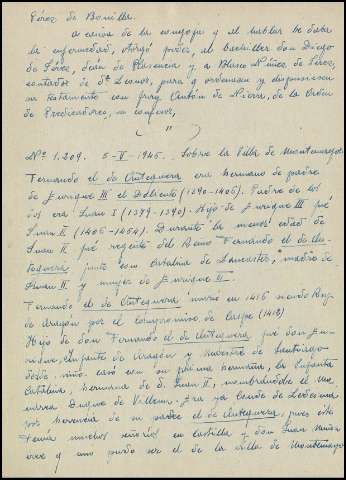 Pérez de Bonilla.
a causa de la congoja y el hablar le daba
la enfermedad, otorgó poder, al bachiller don Diego
de Lérez, deán de Plasencia y a Blasco Núñez de Lérez,
contador de Dª Leonor, para q ordenasen y dispusiesen
su testamento con fray Antón de Nieva, de la Orden
de Predicadores, su confesor,
( " )
Nº 1.209. 5-V-1945. Sobre la Villa de Montemayor
Fernando el de Antequera era hermano de padre
de Enrique III el Doliente (1390-1406). Padre de los
dos era Juan I (1379-1390). Hijo de Enrique III fué
Juan II (1406-1454). Durante la menor edad de
Juan II fué regente del Reino Fernando el de An-
tequera, junto con Catalina de Lancaster, madre de
Juan II y mujer de Enrique III.
Fernando el de Antequera murió en 1416 siendo Rey
de Aragón por el compromiso de Caspe (1412)
Hijo de don Fernando el de Antequera fue don En-
rique, Infante de Aragón y Maestre de Santiago
desde niño. casó con su prima hermana, la Infanta
Catalina, hermana de D. Juan II, nombrándole el Mo-
narca Duque de Villena. Era ya Conde de Ledesma
por herencia de su padre el de Antequera, pues éste
tenía muchos señoríos en Castilla y don Juan
one y uno pudo ser el de la villa de Montemayor